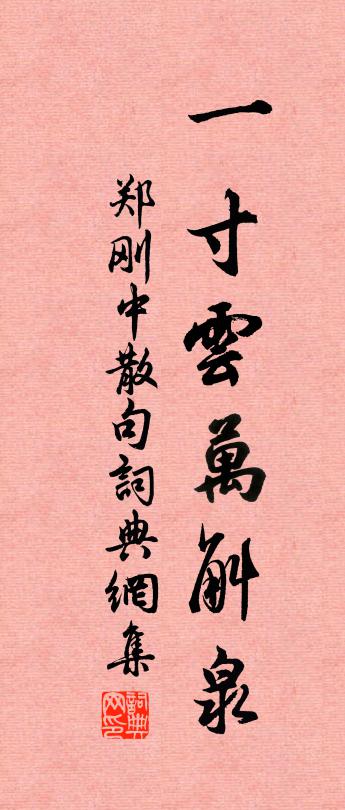 一寸雲萬斛泉
郑刚中散句詞典網集
詞典网印